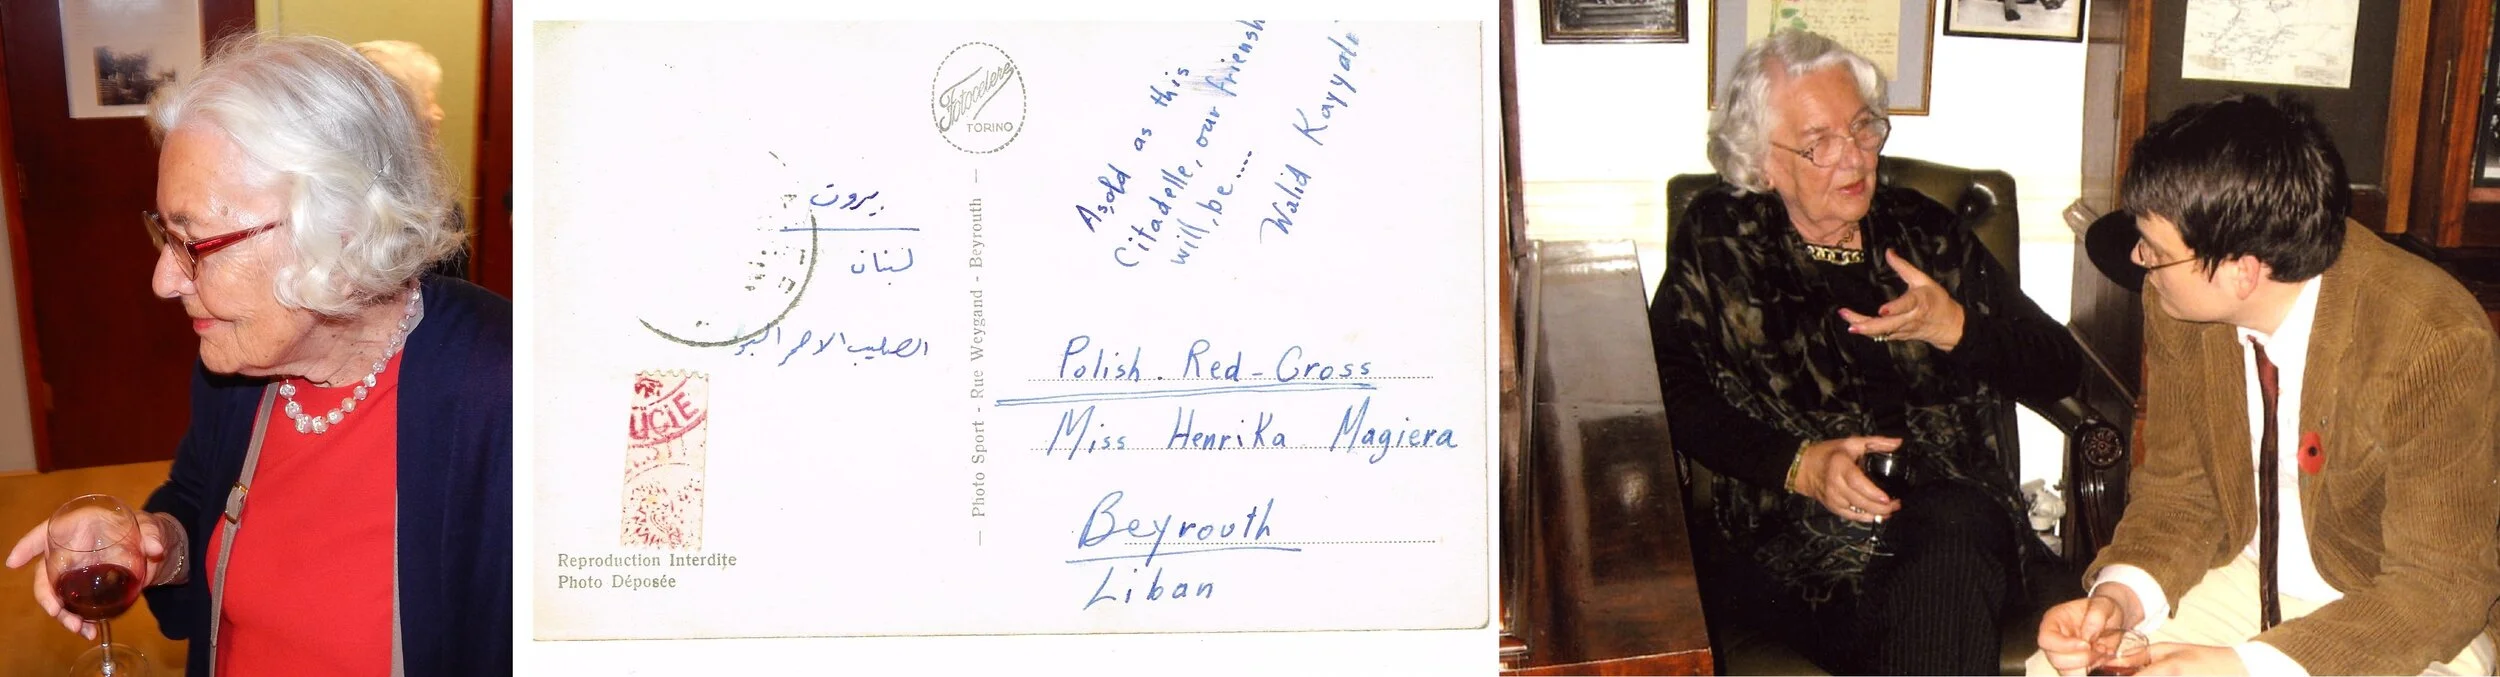 Fotocelere
TORINO
As old as this
Citadelle, our friensh
will, be....
Walid Kayyali
بيروت
لبنان
الصليب الاحمر البو
Polish. Red-Cross
Miss Henrika Magiera
Beyrouth
Liban
— Photo Sport - Rue Weygand - Beyrouth —
UCIE
Reproduction Interdite
Photo Déposée